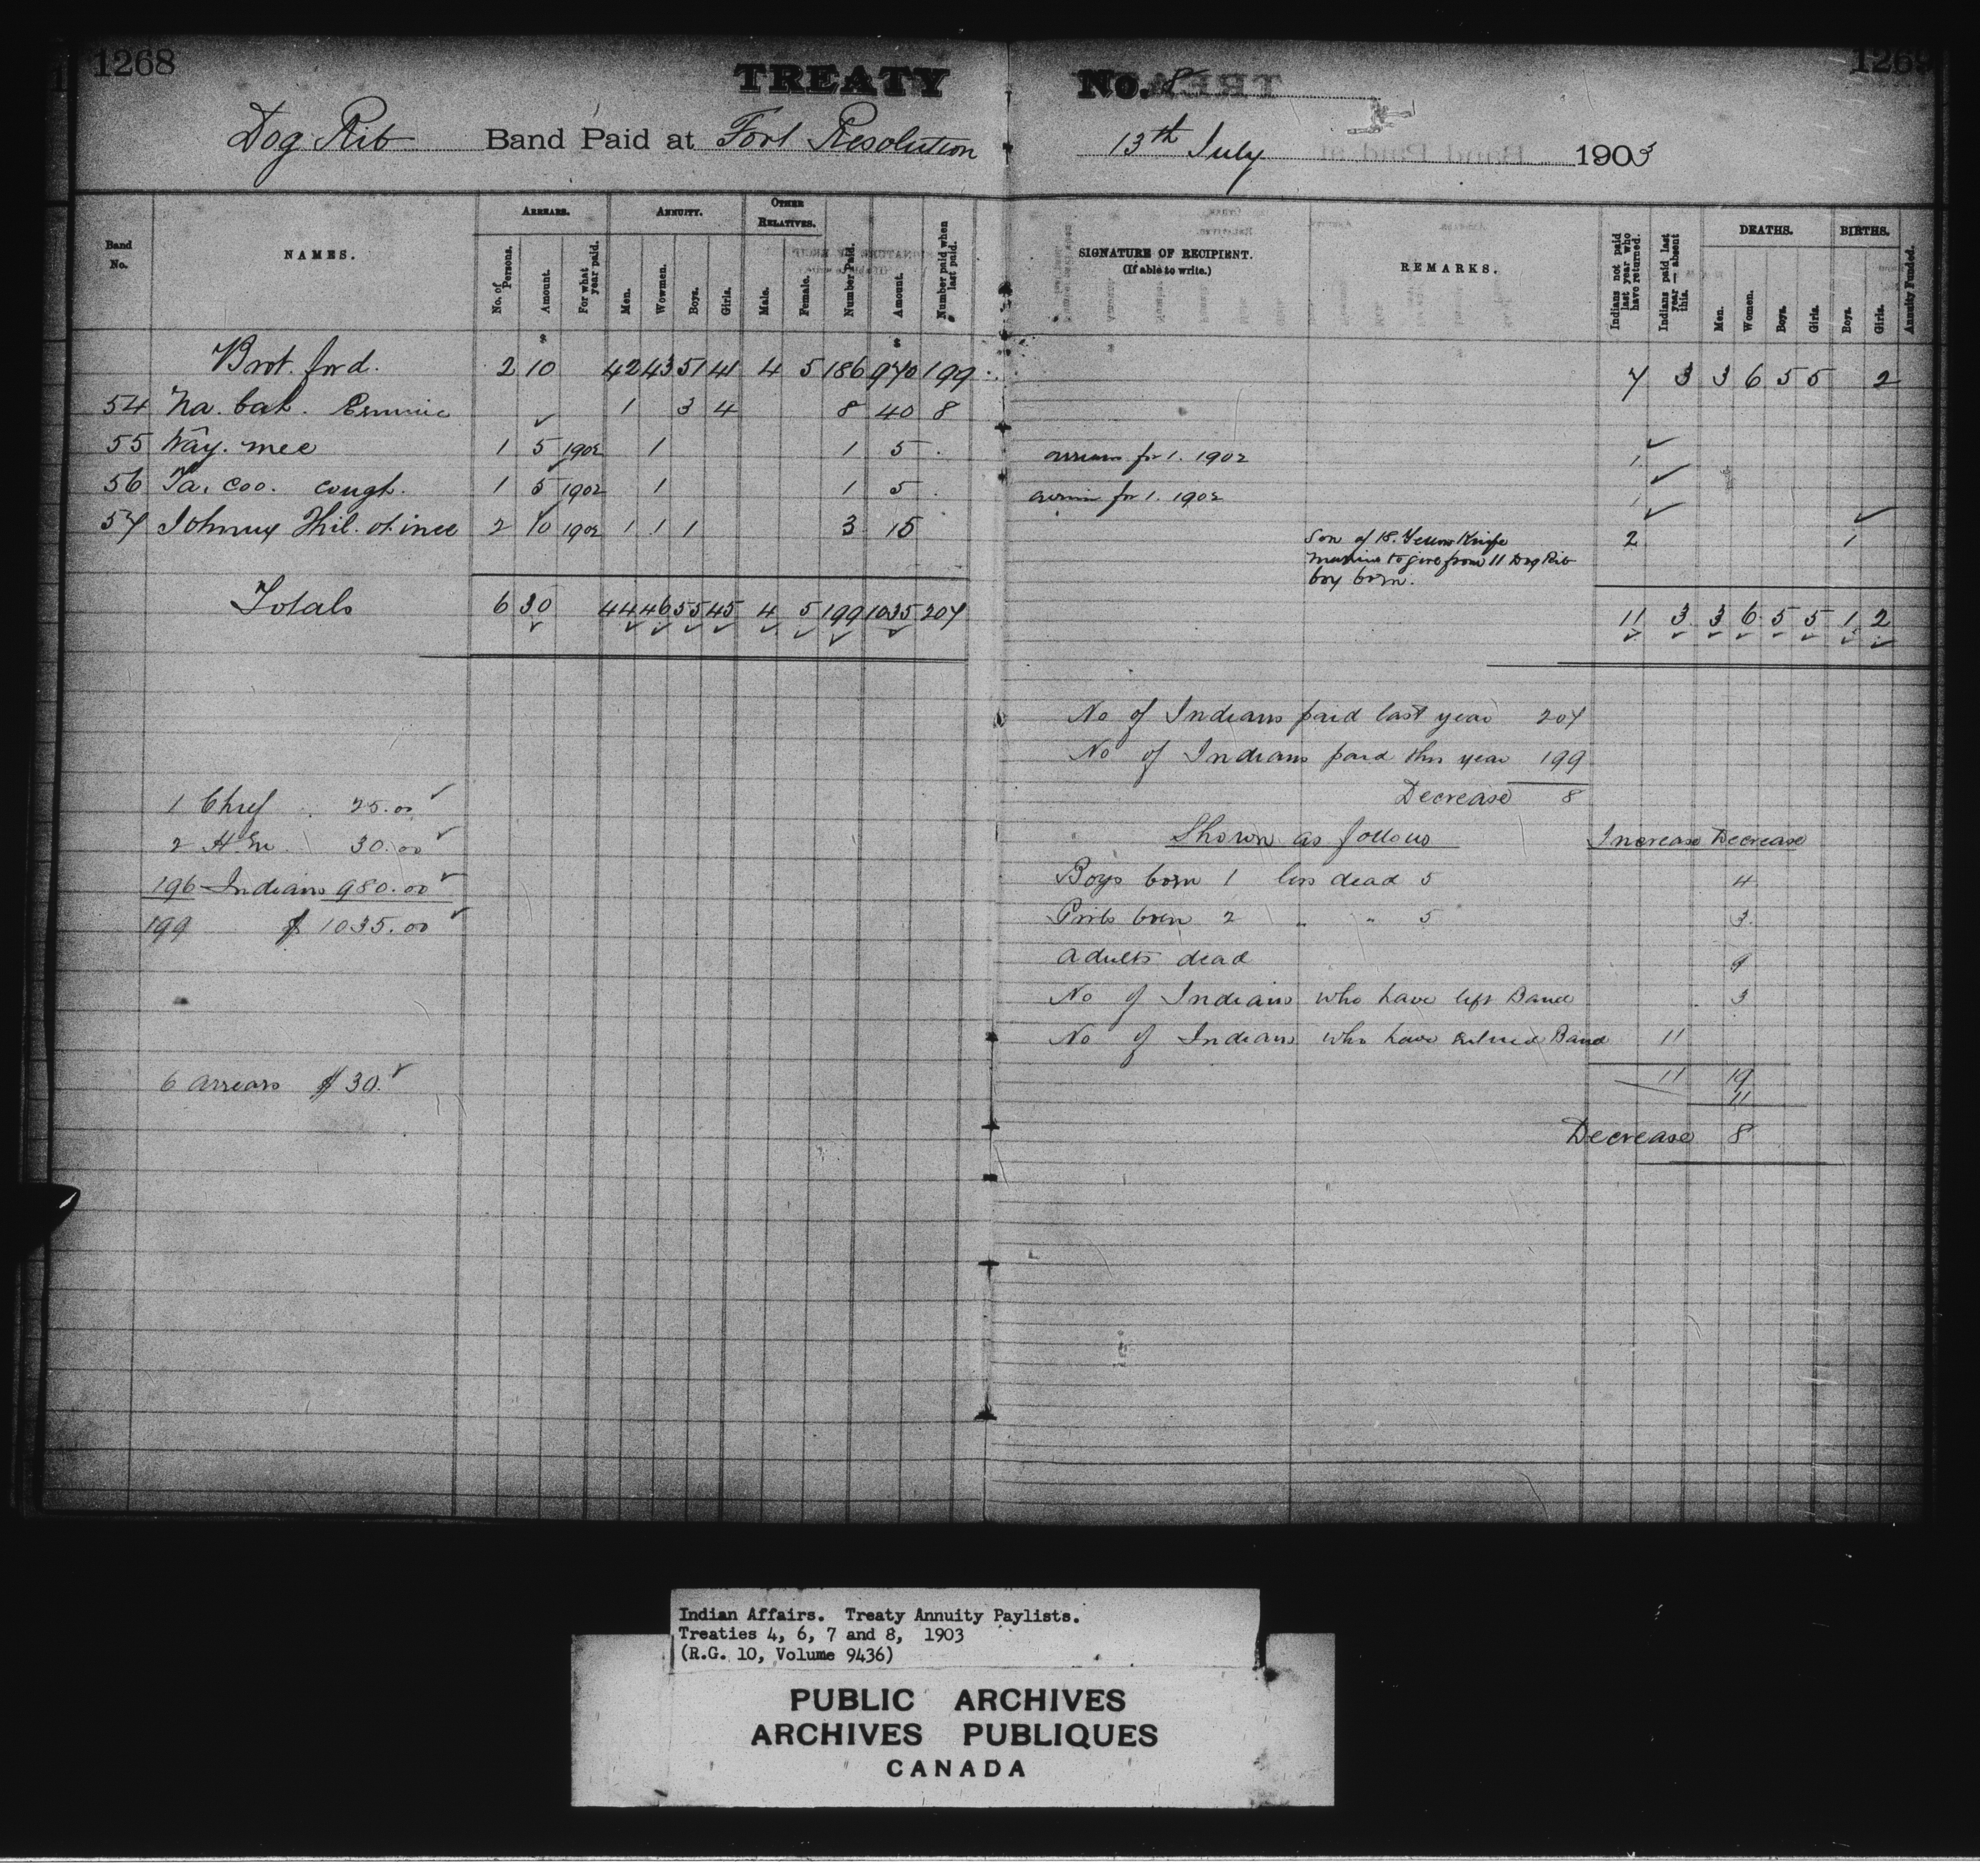 1268
1269
TREATY No. 8
Dog Rib Band Paid at Fort Resolution 13th July 1903
Band No. NAMES. ARREARS. No. of Persons. Amount. For what year paid. ANNUITY. Men. Wowmen. Boys. Girls. OTHER RELATIVES. Male. Female. Number Paid. Amount. Number paid when last paid. SIGNATURE OF RECIPIENT. (If able to write.) REMARKS. Indians not paid last year who have returned. Indians paid last year — absent this. DEATHS. Men. Women. Boys. Girls. BIRTHS. Boys. Girls. Annuity Funded.
$ $
Brot. ford. 2 10 42 43 51 41 4 5 186 970 199 7 3 3 6 5 5 2
54 Na. bah. 1 3 4 8 40 8
55 Way. mee 1 5 1902 1 1 5 arrears for 1. 1902 1
56 Ta. coo. cough. 1 5 1902 1 1 5 arrears for 1. 1902 1
57 Johnny 2 10 1902 1 1 1 3 15 Son of 18. Yellow Knife 2 1
from 11 Dog Rib
boy born.
Totals 6 30 44 46 55 45 4 5 199 1035 207 11 3 3 6 5 5 1 2
No of Indians paid last year 207
No of Indians paid this year 199
Decrease 8
1 Chief 25.00
2 H.m. 30.00
196 Indians 980.00
199 $ 1035.00
6 arrears $ 30.
Shown as follows Increase Decrease
Boys born 1 less dead 5 4
Girls born 2 " " 5 3
adults dead 9
No of Indians who have left Band 3
No of Indians who have Band 11
11 19
11
Decrease 8
Indian Affairs. Treaty Annuity Paylists.
Treaties 4, 6, 7 and 8, 1903
(R.G. 10, Volume 9436)
PUBLIC ARCHIVES
ARCHIVES PUBLIQUES
CANADA